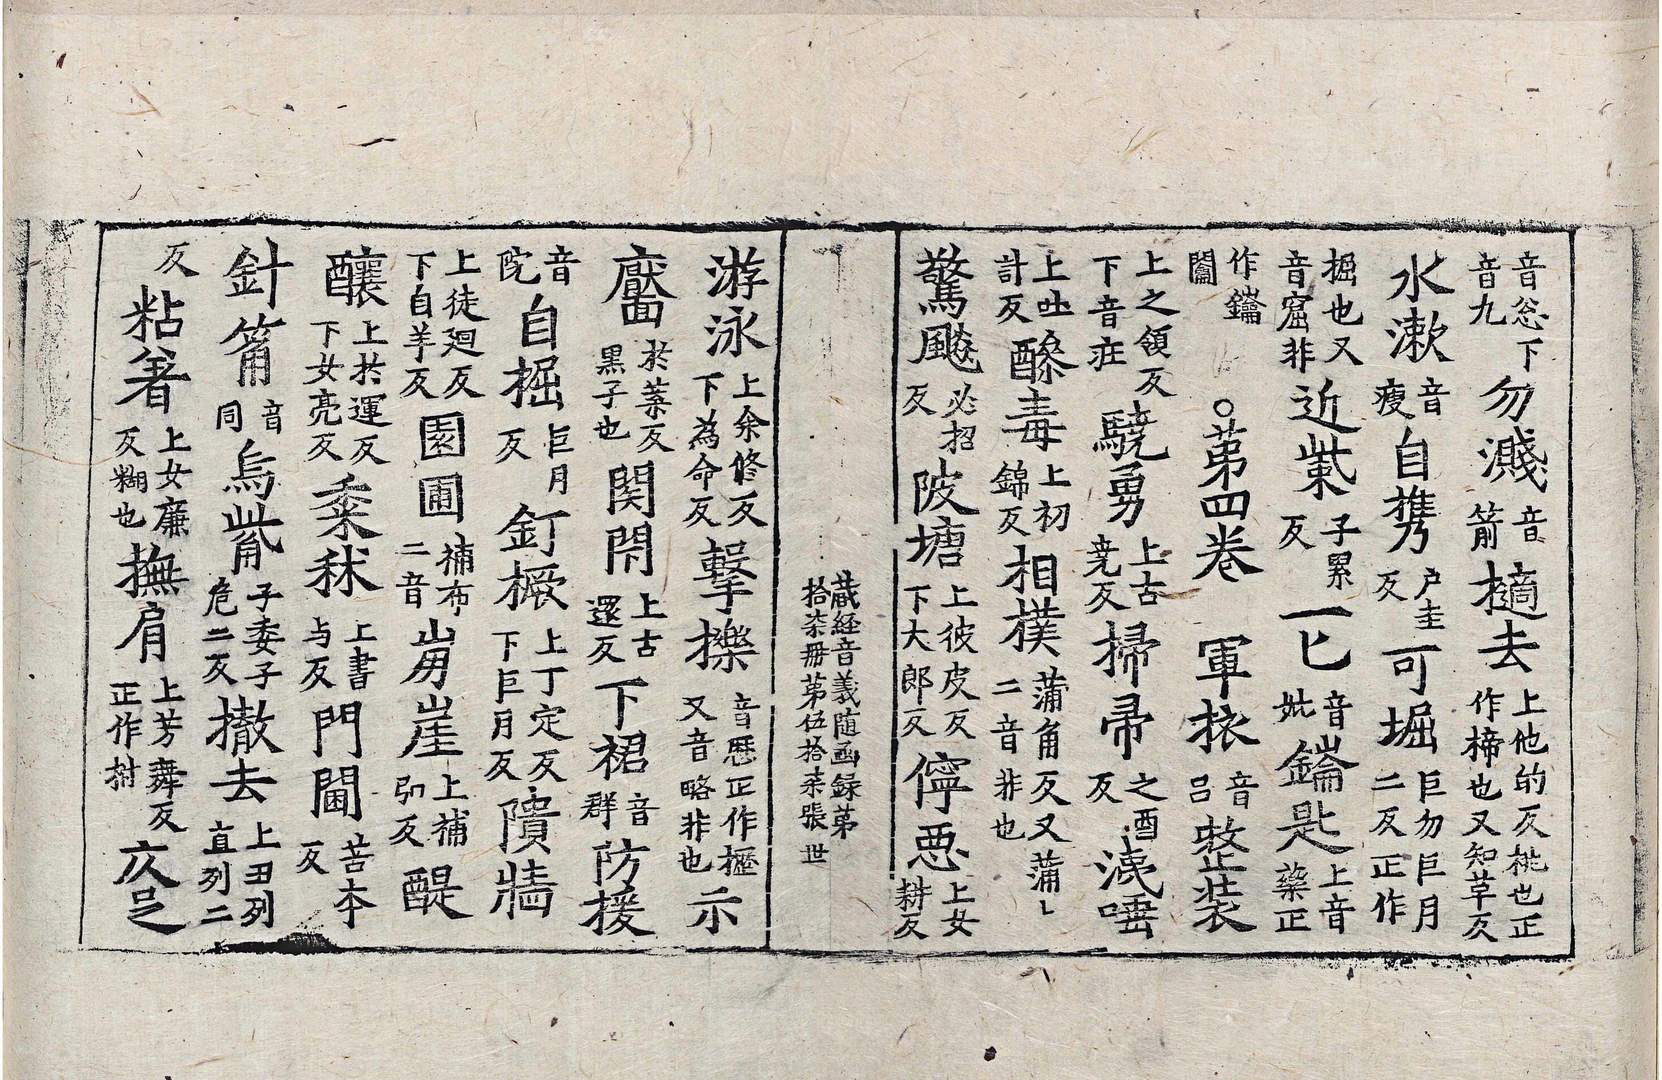 音忩下音九勿濺音箭樀去上他的反桃也正作楴也又知草反
水漱音瘦自携户圭反可堀巨勿巨月二反正作
掘也又音窟非近紫子累反一匕音妣鑰匙上音藥正
作鑰闔
○苐四卷 軍捄音吕整裝
上之領反下音疰驍勇上古尭反掃帚之酉反洟唾
上吐計反醦毒上初錦反相撲蒲角反又蒲卜二音非也
驚飈必招反陂塘上彼皮反下大郎反儜惡上女耕反
蔵経音義随函録苐拾柒冊苐伍拾柒張 世
游泳上余修反下為命反擊擽音歷正作㩹又音略非也示
黶於葉反黒子也関閇上古還反下裙音群防援
音院自掘巨月反釘橛上丁定反下巨月反隤牆
上徒廻反下自羊反園圃補布二音剬崖上補引反醍
釀上於運反下女亮反黍秫上書与反門閫苦本反
針筩音同烏觜子委子危二反撤去上丑列直列二
反粘著上女廉反糊也撫肩上芳舞反正作拊